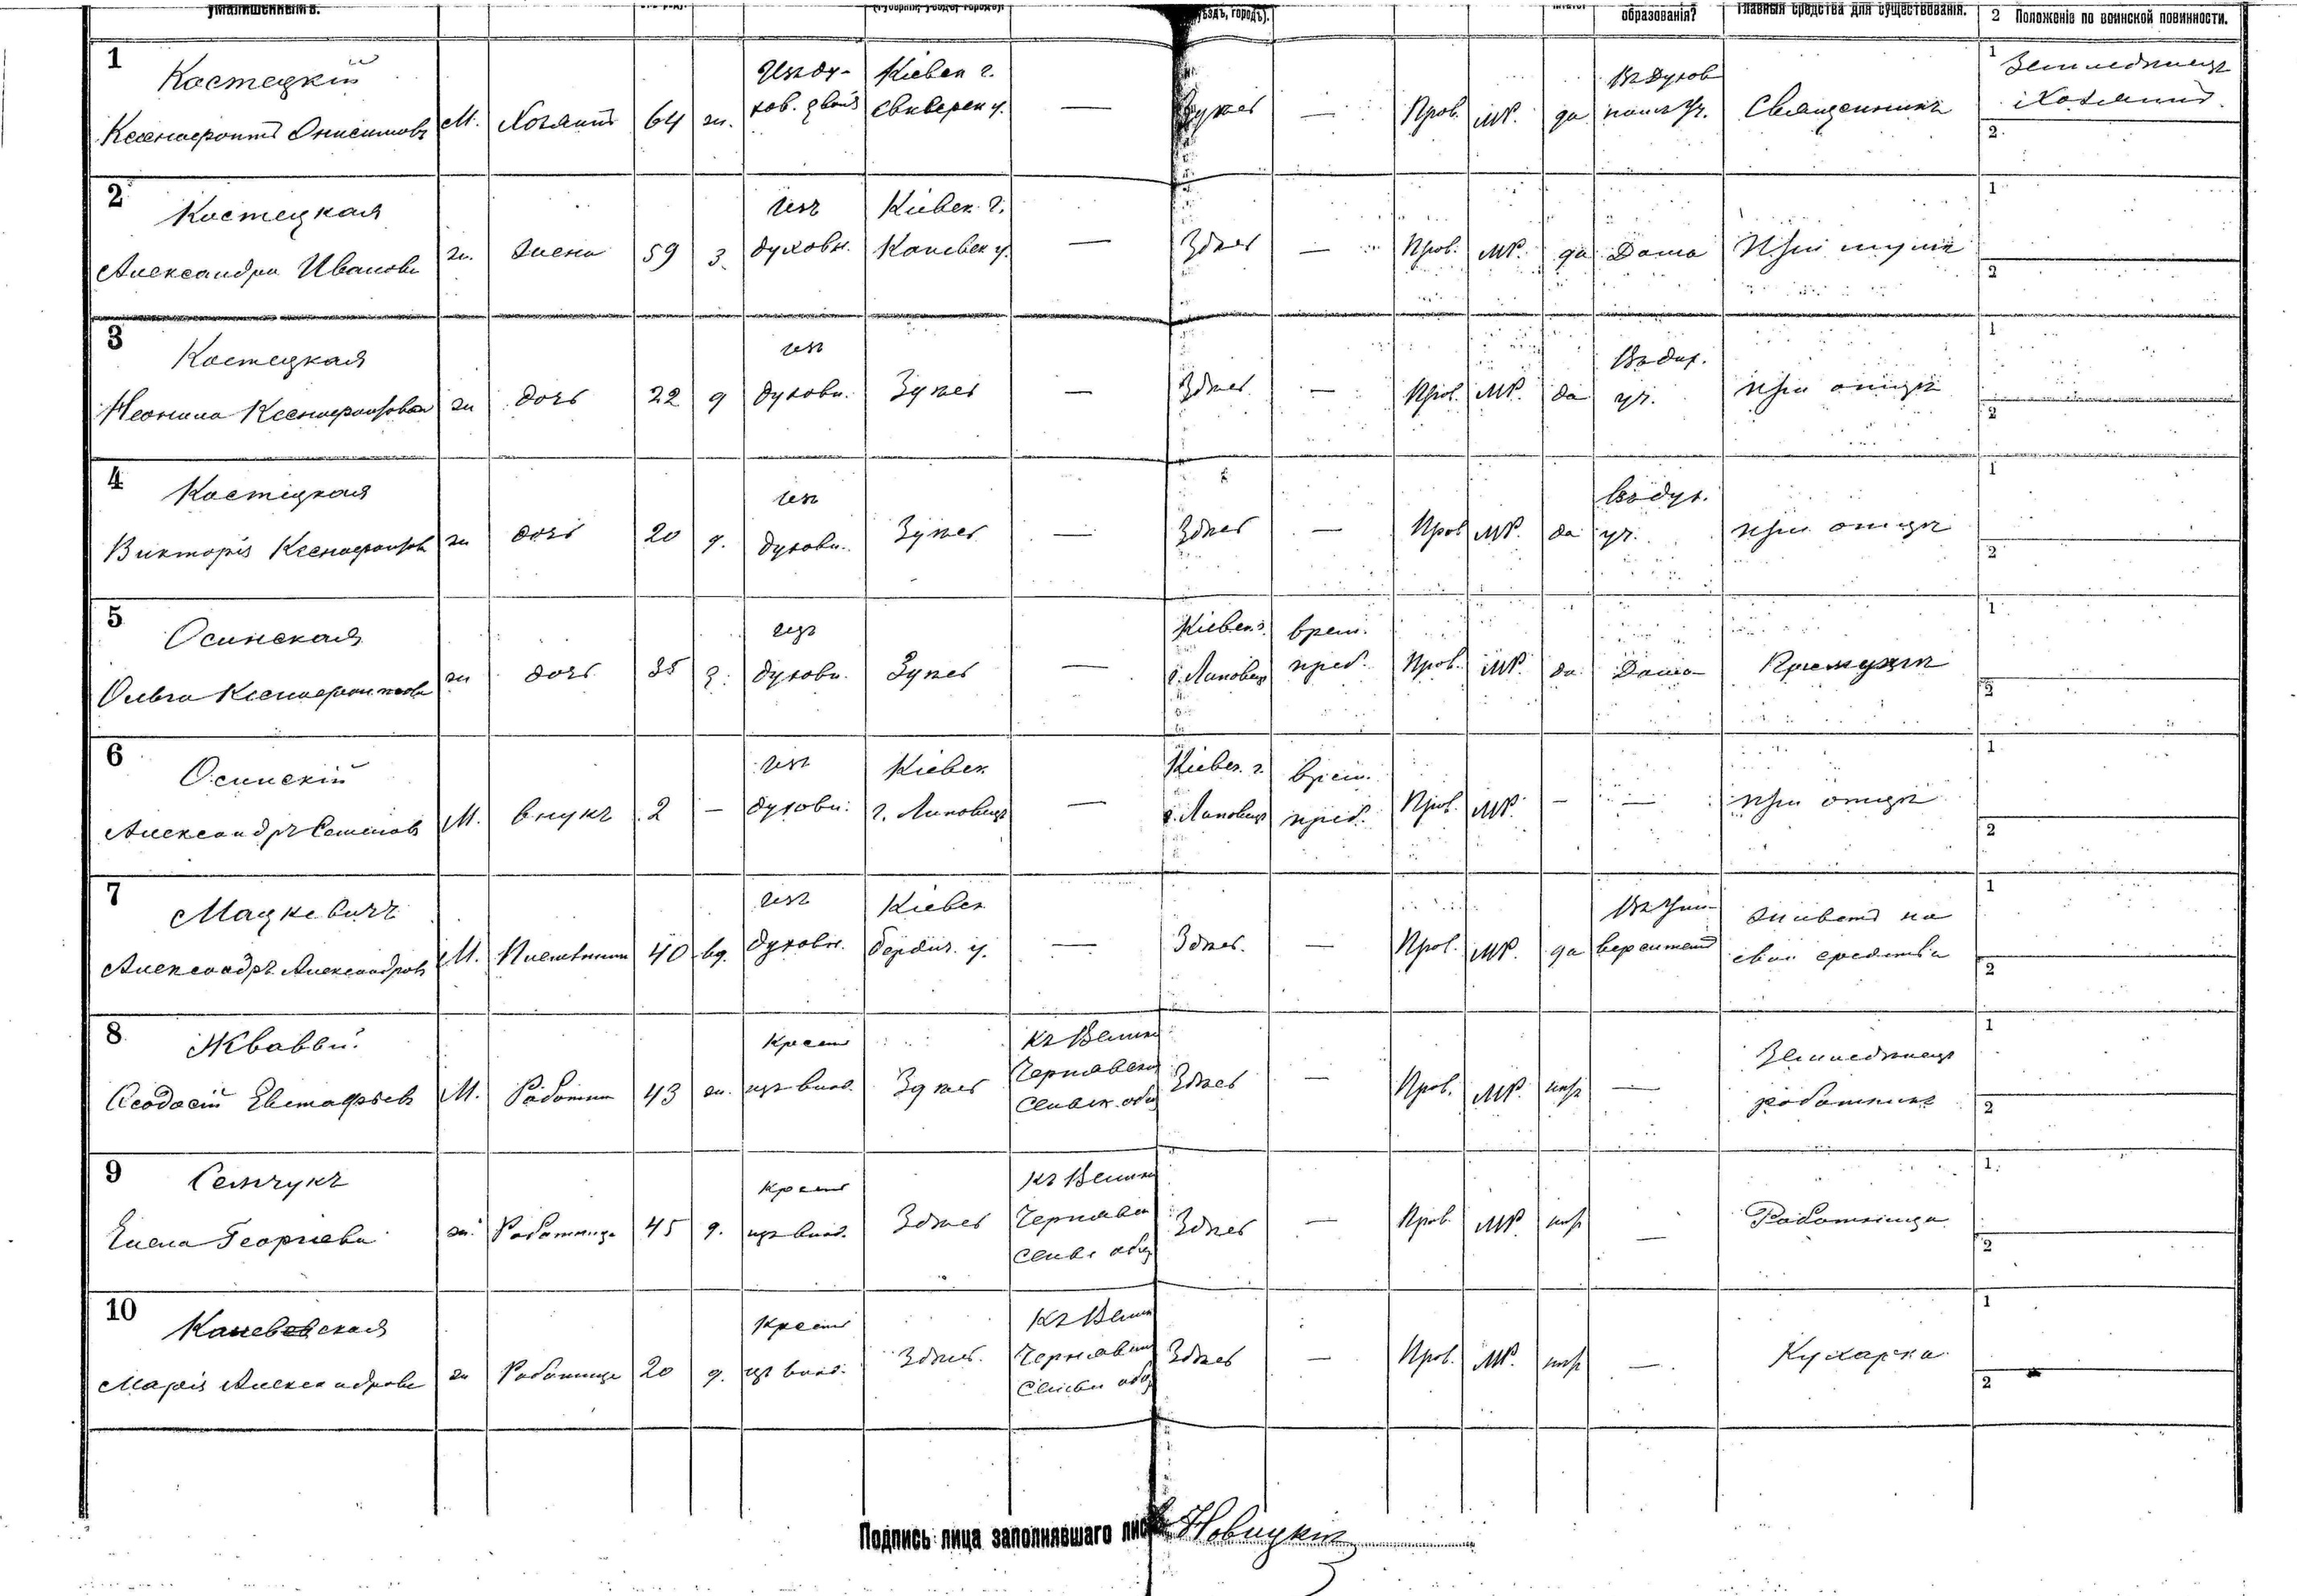 умалишеннымъ.
(губернія, уѣздъ, городъ).
уѣздъ, городъ).
образованія?
главныя средства для существованія.
2 Положеніе по воинской повинности.
1
Костецкій
Ксенофонтъ Онисимовъ
М.
Хозяинъ
64
ж.
Изъ ду-
хов. званія
Кіевск г.
Сквирск у.
—
Здѣсь
—
Прав.
МР.
да
Въ духов
ном уч.
Священникъ
1
Земледѣлецъ
Хозяинъ.
2
2
Костецкая
Александра Иванова
ж.
жена
59
з.
изъ
духовн.
Кіевск. г.
Каневск у.
—
Здѣсь
—
Прав.
МР.
да
Дома
При мужѣ
1
2
3
Костецкая
Неонила Ксенофонтова
ж
дочь
22
д
изъ
духовн.
Здѣсь
—
Здѣсь
—
Прав.
МР.
да
Въ дух.
уч.
при отцѣ
1
2
4
Костецкая
Викторія Ксенофонтов
ж
дочь
20
д.
изъ
духовн.
Здѣсь
—
Здѣсь
—
Прав
МР.
да
Въ дух.
уч.
при отцѣ
1
2
5
Осинская
Ольга Ксенофонтова
ж
дочь
35
з.
изъ
духовн.
Здѣсь
—
Кіевск. г.
г. Липовецъ
врем.
преб.
Прав.
МР.
да
Дома
При мужѣ
1
2
6
Осинскій
Александръ Семеновъ
М.
внукъ
2
—
изъ
духовн.
Кіевск
г. Липовецъ
—
Кіевск. г.
г. Липовецъ
врем.
преб.
Прав.
МР.
—
—
при отцѣ
1
2
7
Мацкевичъ
Александръ Александровъ
М.
Племянник
40
вд.
изъ
духовн.
Кіевск
Бердич. у.
—
Здѣсь.
—
Прав.
МР.
да
Въ Уни-
верситетѣ
живетъ на
свои средства
1
2
8
Жвавый
Ѳеодосій Евстафьевъ
М.
Работник
43
ж.
Крест
изъ влад.
Здѣсь
Къ Велико
Чернявско
Сельск. общ
Здѣсь
—
Прав.
МР.
нѣт
—
Земледѣлецъ
работникъ
1
2
9
Семчукъ
Елена Георгіева
ж.
Работница
45
д.
Крест
изъ влад.
Здѣсь
Къ Велико
Чернявск
Сельск общ
Здѣсь
—
Прав.
МР.
нѣт
—
Работница
1
2
10
Каневская
Марія Александрова
ж
Работница
20
д.
Крест
изъ влад.
Здѣсь.
Къ Велик
Чернявск
Сельск общ
Здѣсь
—
Прав.
МР.
нѣт
—
Кухарка
1
2
Подпись лица заполнявшаго листъ Новицкій